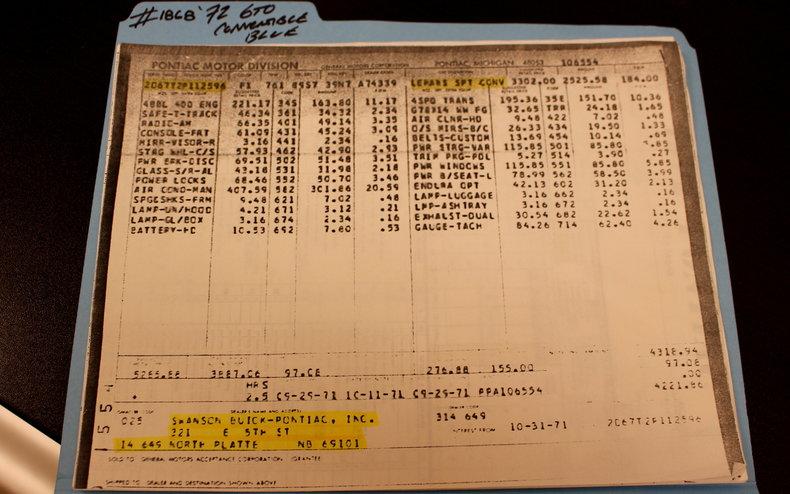 #18GB '72 GTO
CONVERTIBLE
BLUE
PONTIAC MOTOR DIVISION GENERAL MOTORS CORPORATION PONTIAC, MICHIGAN 48053 106554
2D67T2P112596 F1 761 8957 39N7 A74339 LEMANS SPT CONV 3302.00 2525.58 184.00
488L 400 ENG 221.17 34S 163.80 11.17 4SPD TRANS 195.36 35E 151.70 10.36
SAFE-T-TRACK 46.34 361 34.32 2.34 G78X14 WW FG 32.65 TRR 24.18 1.65
RADIO-AM 66.35 401 49.14 3.35 AIR CLNR-HD 9.48 422 7.02 .48
CONSOLE-FRT 61.09 431 45.24 3.09 O/S MIRS-B/C 26.33 434 19.50 1.33
MIRR-VISOR-R 3.16 441 2.34 .16 BELTS-CUSTOM 13.69 454 10.14 .69
STRG WHL-C/S 57.93 462 42.90 2.93 PWR STRG-VAR 115.85 501 85.80 5.85
PWR BRK-DISC 69.51 502 51.48 3.51 TRIM PKG-PDL 5.27 514 3.90 .27
GLASS-S/R-AL 43.18 531 31.98 2.18 PWR WINDOWS 115.85 551 85.80 5.85
POWER LOCKS 68.46 552 50.70 3.46 PWR B/SEAT-L 78.99 562 58.50 3.99
AIR COND-MAN 407.59 582 301.86 20.59 ENDURA OPT 42.13 602 31.20 2.13
SPGGSHKS-FRM 9.48 621 7.02 .48 LAMP-LUGGAGE 3.16 662 2.34 .16
LAMP-UN/HOOD 4.21 671 3.12 .21 LMP-ASHTRAY 3.16 672 2.34 .16
LAMP-GL/BOX 3.16 674 2.34 .16 EXHALST-DUAL 30.54 682 22.62 1.54
BATTERY-HD 10.53 692 7.80 .53 GAUGE-TACH 84.26 714 62.40 4.26
4318.94
5285.88 3887.06 97.08 276.88 155.00 97.08
HRS .00
2.5 09-29-71 10-11-71 09-29-71 PPA106554 4221.86
DEALERS NAME AND ADDRESS
025 SWANSON BUICK-PONTIAC, INC. 314 649
221 E 5TH ST INTEREST FROM 10-31-71 2D67T2P112596
14 649 NORTH PLATTE NB 69101
SOLD TO GENERAL MOTORS ACCEPTANCE CORPORATION (GRANTEE
SHIPPED TO DEALER AND DESTINATION SHOWN ABOVE